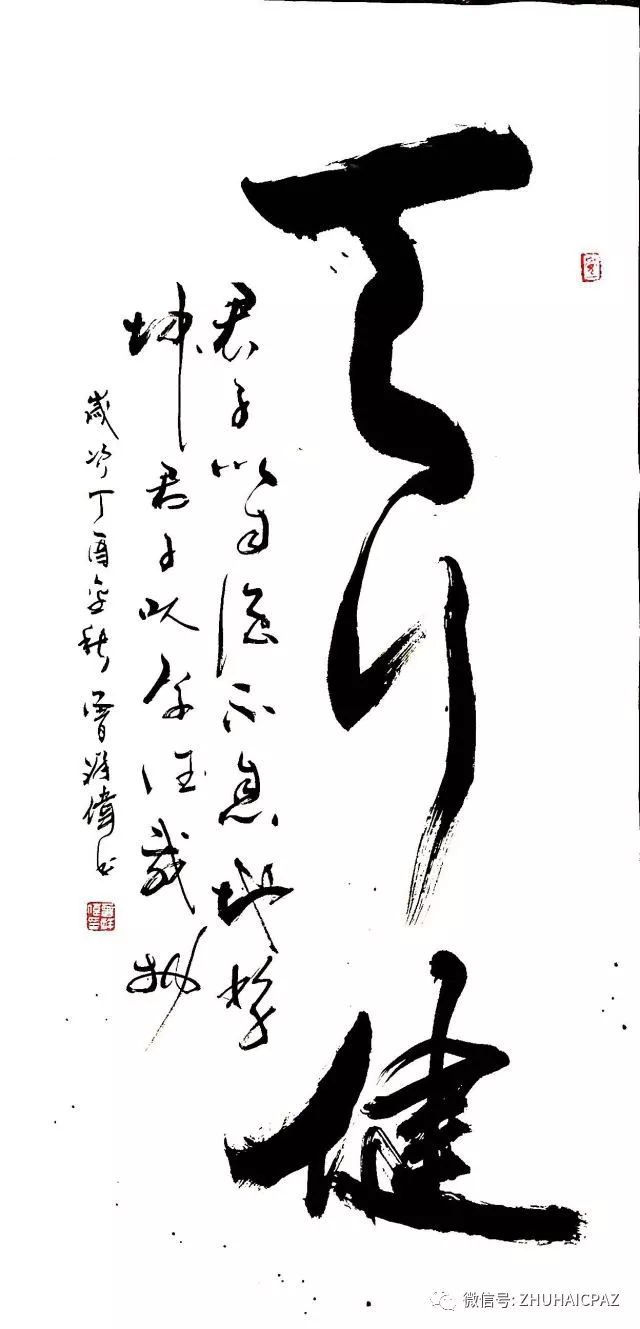 天行健
君子以自強不息地勢
坤君子以厚德載物
歲次丁酉金秋曾祥偉书
微信号: ZHUHAICPAZ